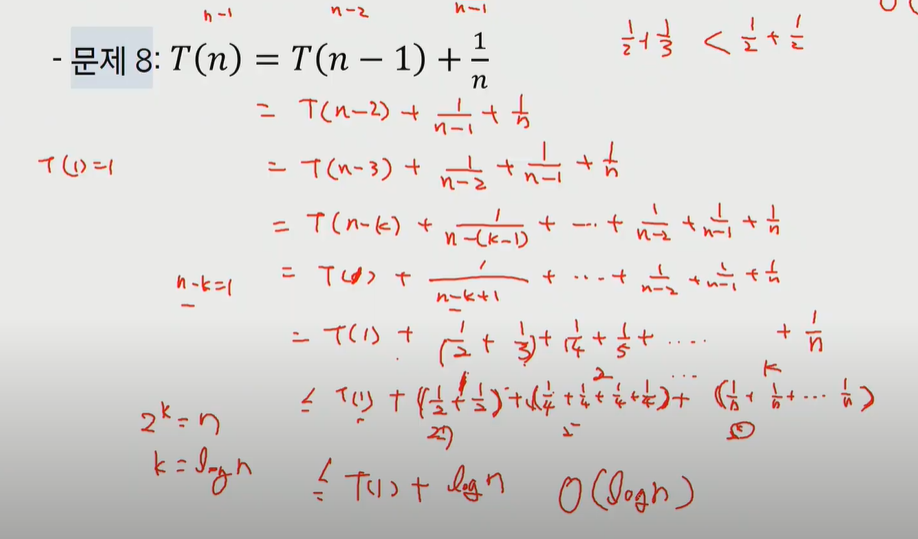 n-1 n-2 n-1
- 문제 8: T(n) = T(n − 1) + 1/n
1/2 + 1/3 < 1/2 + 1/2
= T(n-2) + 1/(n-1) + 1/n
T(1)=1
= T(n-3) + 1/(n-2) + 1/(n-1) + 1/n
= T(n-k) + 1/(n-(k-1)) + ... + 1/(n-2) + 1/(n-1) + 1/n
n-k=1
= T(1) + 1/(n-k+1) + .... + 1/(n-2) + 1/(n-1) + 1/n
= T(1) + (1/2 + 1/3) + 1/4 + 1/5 + .... + 1/n
≤ T(1) + (1/2 + 1/2) + (1/4 + 1/4 + 1/4 + 1/4) + ... (1/n + 1/n + ... 1/n)
2^k = n
k = log n
≤ T(1) + log n O(log n)